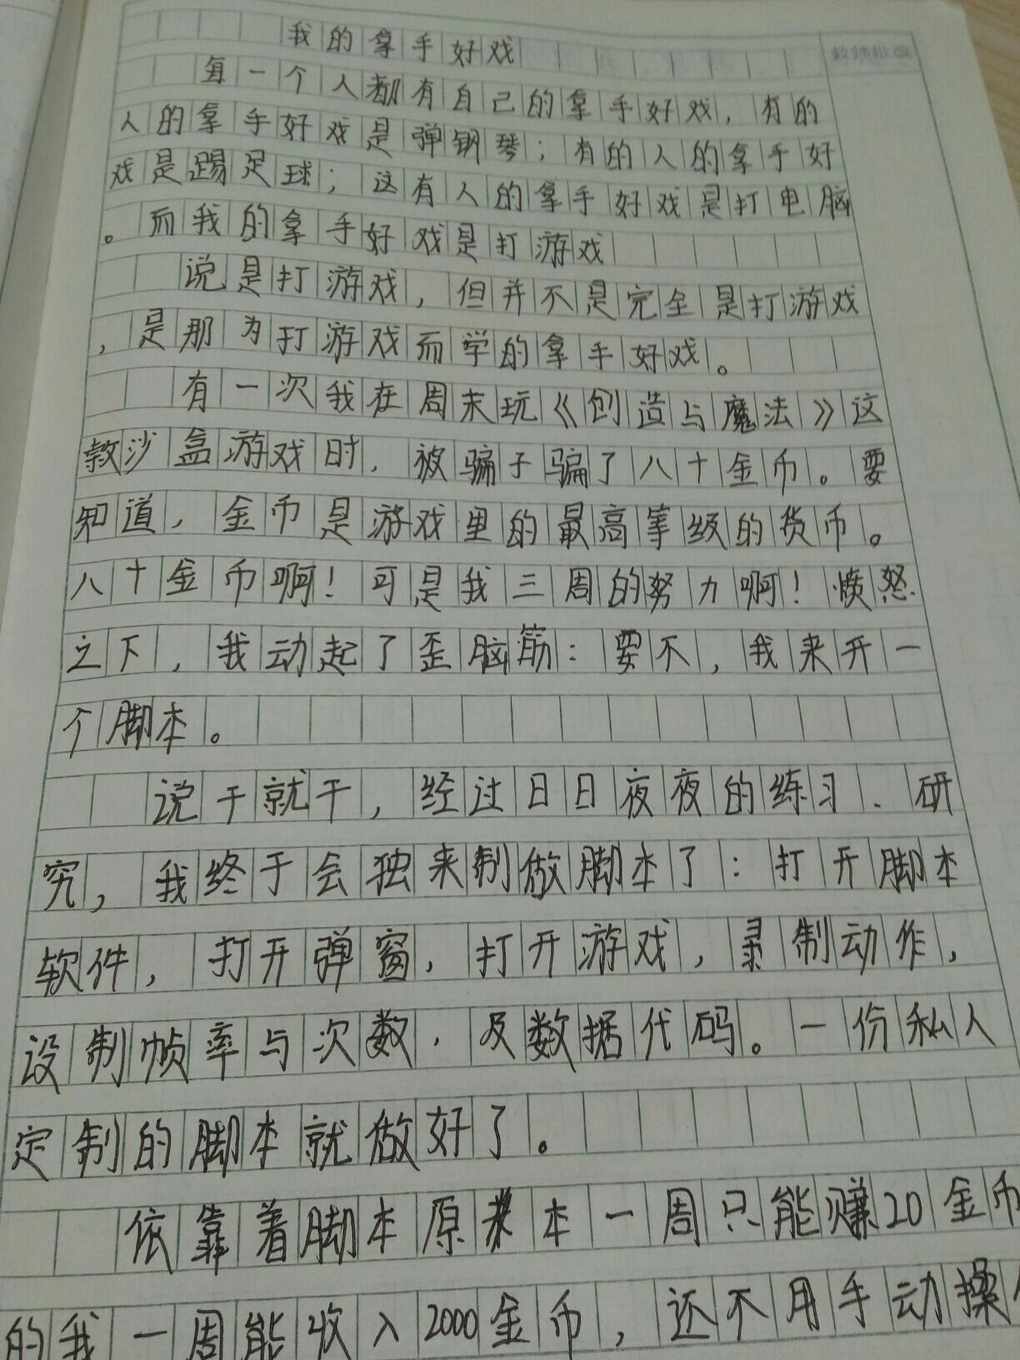 我的拿手好戏
每一个人都有自己的拿手好戏，有的
人的拿手好戏是弹钢琴；有的人的拿手好
戏是踢足球；这有人的拿手好戏是打电脑
。而我的拿手好戏是打游戏
说是打游戏，但并不是完全是打游戏
，是那为打游戏而学的拿手好戏。
有一次我在周末玩《创造与魔法》这
款沙盒游戏时，被骗子骗了八十金币。要
知道，金币是游戏里的最高等级的货币。
八十金币啊！可是我三周的努力啊！愤怒
之下，我动起了歪脑筋：要不，我来开一
个脚本。
说干就干，经过日日夜夜的练习、研
究，我终于会独来制做脚本了：打开脚本
软件，打开弹窗，打开游戏，录制动作，
设制帧率与次数，及数据代码。一份私人
定制的脚本就做好了。
依靠着脚本原来本一周只能赚20金币
的我一周能收入2000金币，还不用手动操